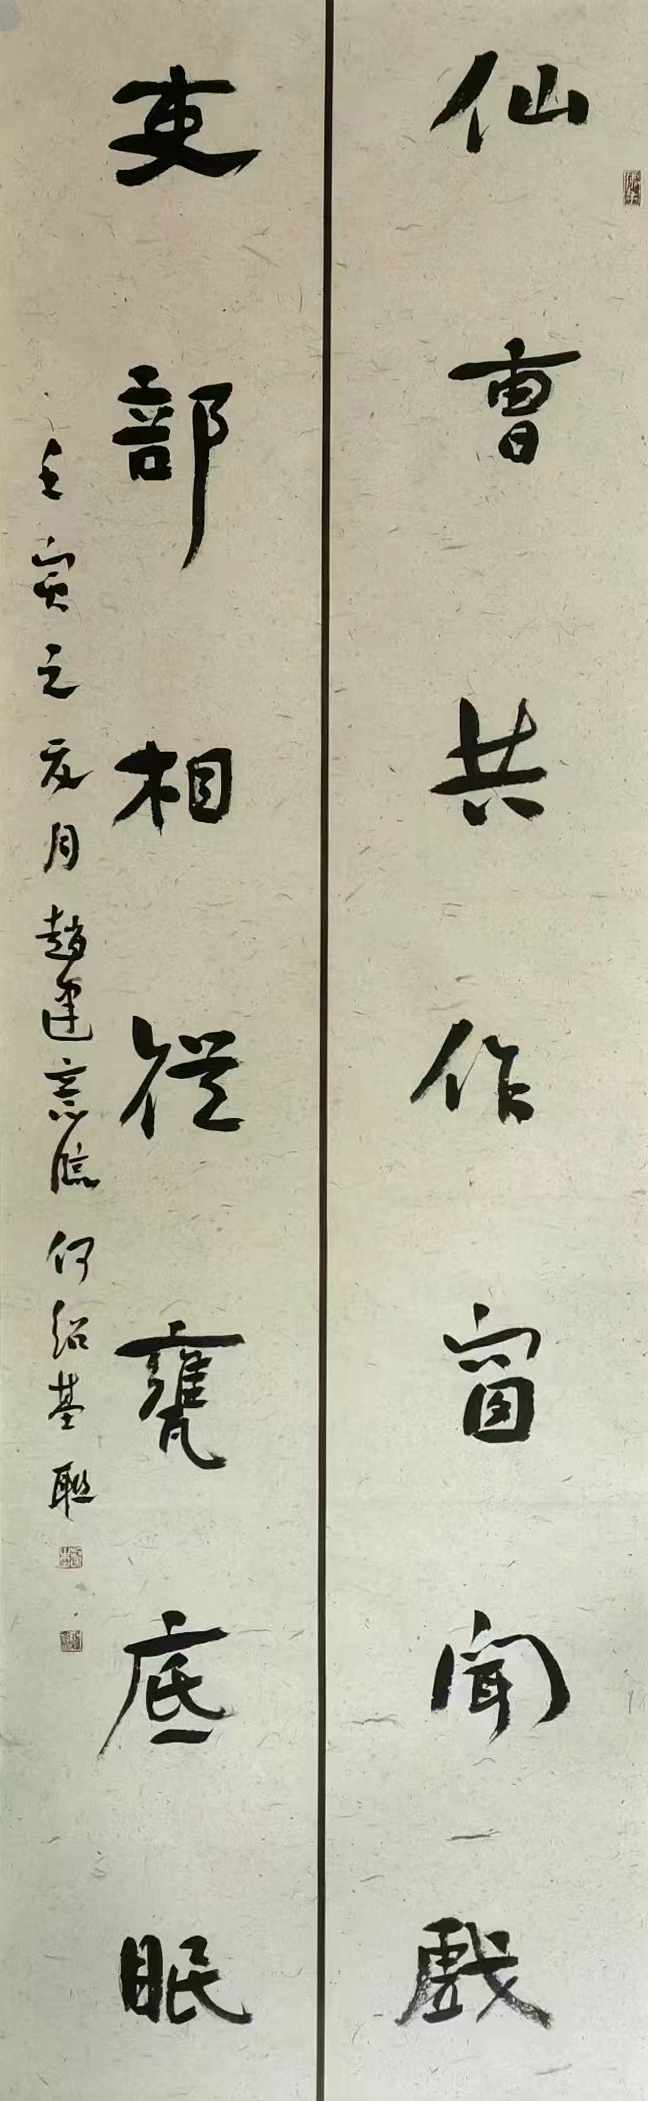 仙曹共作窗聞戲
吏部相從甕底眠
壬寅之夏月趙建意臨何紹基聯